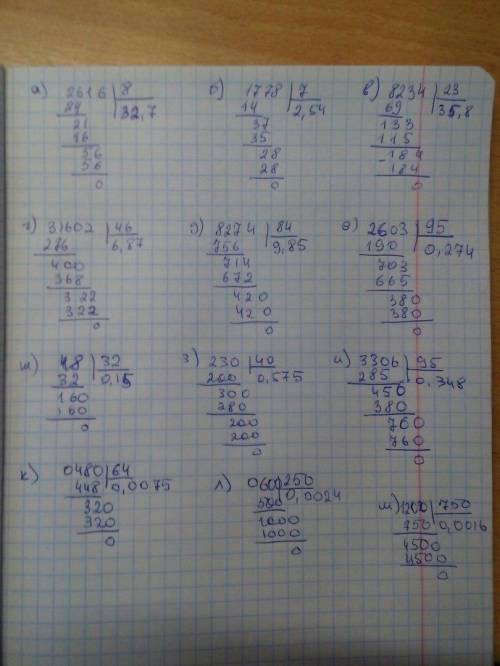 а) 2616 | 8 б) 1778 | 7 в) 8234 | 23
24 32,7 14 2,54 69 35,8
21 37 133
16 35 115
56 28 184
56 28 184
0 0 0
г) 31602 | 46 д) 8274 | 84 е) 2603 | 95
276 6,87 756 9,85 190 0,274
400 714 703
368 672 665
322 420 380
322 420 380
0 0 0
ж) 48 | 32 з) 230 | 40 и) 3306 | 95
32 0,15 200 0,575 285 0,348
160 300 450
160 280 380
0 200 760
200 760
0 0
к) 0480 | 64 л) 0600 | 250 м) 1200 | 750
448 0,0075 500 0,0024 750 0,0016
320 1000 4500
320 1000 4500
0 0 0